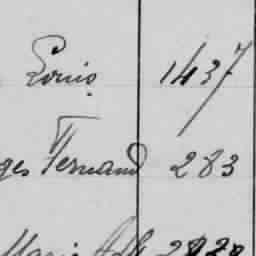 Louis 1437
ges Fernand 283
Marie